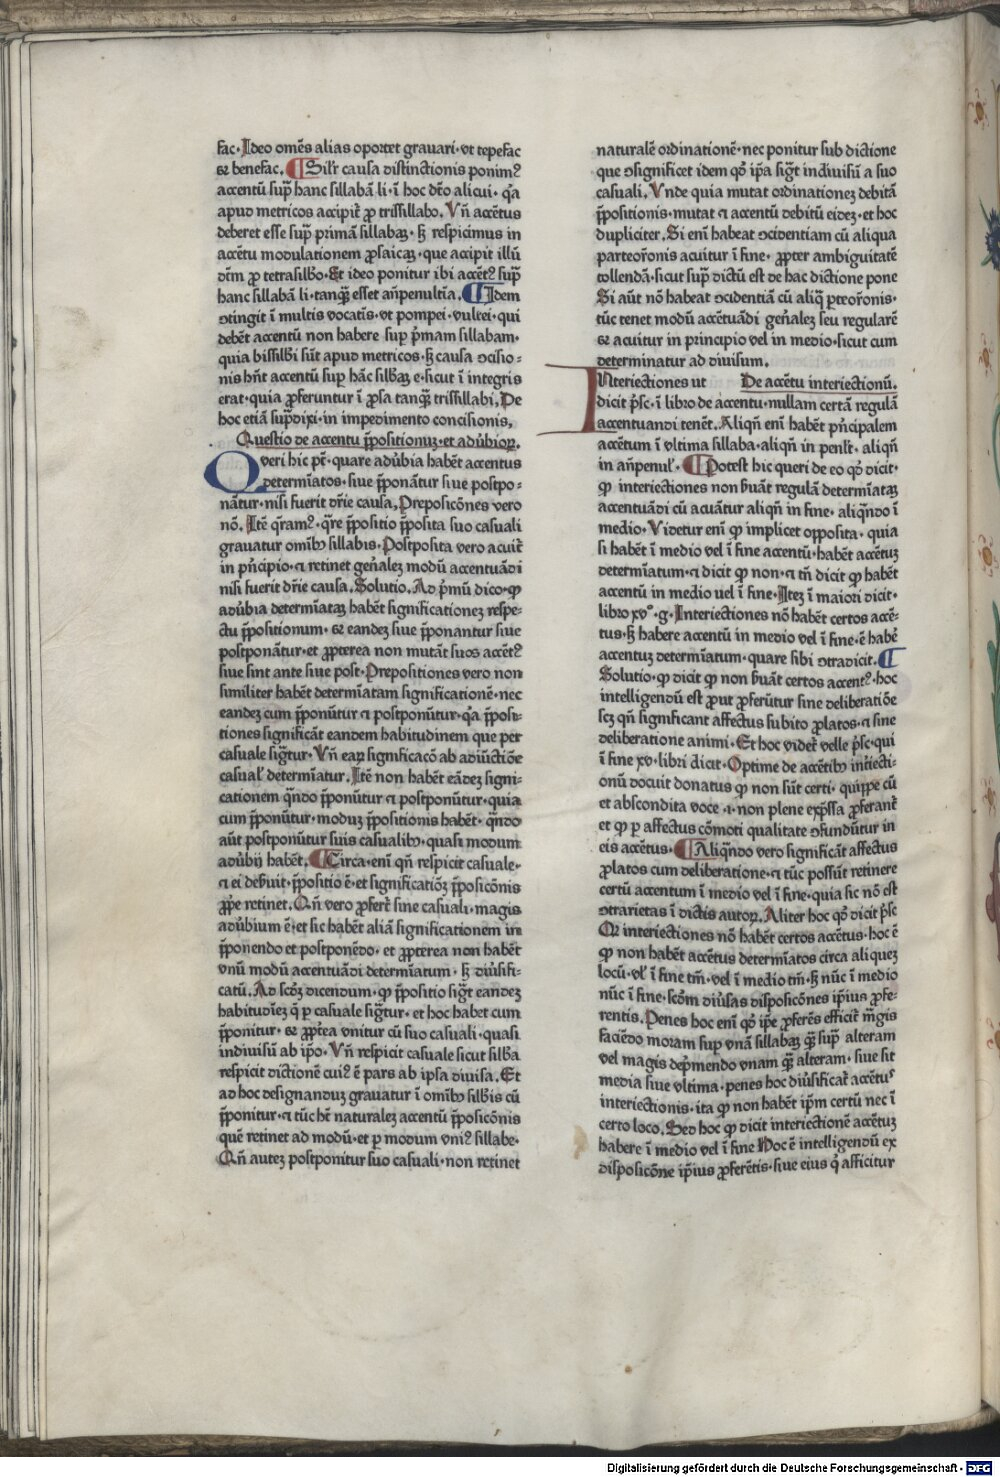 fac. Ideo om̄es alias oportet grauari. vt tepefac
ꝛ benefac. ¶ Sil'r causa distinctionis ponim⁹
accentū sup̄ hanc sillabā li. ī hoc dt̄o alicui. q̇a
apud metricos accipit̄ ꝓ trissillabo. Vn̄ accētus
deberet esse sup̄ primā sillabaꝫ. sꝫ respicimus in
accētu modulationem ꝓsaicaꝫ. que accipit illū
dēm ꝓ tetrasillb̄o. Et ideo ponitur ibi accēt⁹ sup̄
hanc sillabā li. tanqꝫ̄ esset an̄penultīa. ¶ Idem
ꝯtingit ī multis vocatīs. vt pompei. vultei. qui
debēt accentū non habere sup p̄mam sillabam.
quia bissillb̄i sūt apud metricos. sꝫ causa ꝯcisio⸗
nis hn̄t accentū sup hāc sillb̄aꝫ e. sicut ī integris
erat. quia ꝓferuntur ī ꝓsa tanqꝫ̄ trissillabi. De
hoc etiā sup̄dixi. in impedimento concisionis.
Questio de accentu p̄positionuꝫ. et adūbioꝝ.
Queri hic pt̄. quare adūbia habēt accentus
determīatos. siue p̄ponātur siue postpo⸗
nātur. nisi fuerit dr̄ie causa. Preposicōnes vero
nō. Itē q̄ram⁹. q̄re p̄positio p̄posita suo casuali
grauatur omībꝫ sillabis. Postposita vero acuit̄
in pn̄cipio. ⁊ retinet gen̄alez modū accentuādi
nisi fuerit dr̄ie causa. Solutio. Ad p̄mū dico. ꝙ
adūbia determīataꝫ habēt significationez respe⸗
ctu p̄positionum. ꝛ eandez siue p̄ponantur siue
postponātur. et ꝓpterea non mutāt suos accēt⁹
siue sint ante siue post. Prepositiones vero non
similiter habēt determīatam significationē. nec
eandez cum p̄ponūtur ⁊ postponūtur. q̇a p̄posi⸗
tiones significāt eandem habitudinem que per
casuale sig̅tur. Vn̄ eaꝝ significacō ab adiūctiōe
casual' determīatur. Itē non habēt eādez signi⸗
cationem qn̄do p̄ponūtur ⁊ postponūtur. quia
cum p̄ponūtur. moduꝫ p̄positionis habēt. qn̄do
aūt postponūtur suis casualibꝫ. quasi modum
adūbij habēt. ¶ Circa. enī qn̄ respicit casuale.
⁊ ei deb̄uit. p̄positio ē. et significatiōꝫ p̄posicōnis
ꝓpe retinet. Qn̄ vero ꝓfert̄ sine casuali. magis
adūbium ē. et sic habēt aliā significationem in
p̄ponendo et postponēdo. et ꝓpterea non habēt
vnū modū accentuādi determīatum. sꝫ diūsifi⸗
catū. Ad scd̄ꝫ dicendum. ꝙ p̄positio sig̅t eandez
habitudīez q̄ p casuale sig̅tur. et hoc habet cum
p̄ponitur. ꝛ ꝓpt̄ea vnitur cū suo casuali. quasi
indiuisū ab ip̄o. Vn̄ respicit casuale sicut silb̄a
respicit dictionē cui⁹ ē pars ab ipsa diuisa. Et
ad hoc designanduꝫ grauatur ī omībꝫ silb̄is cū
p̄ponitur. ⁊ tūc hēt naturalez accentū p̄posicōnis
quē retinet ad modū. et ꝑ modum vni⁹ sillabe.
Qn̄ autez postponitur suo casuali. non retinet
naturalē ordinationē. nec ponitur sub dictione
que ꝯsignificet idem qd̄ ip̄a sig̅t indiuisū a suo
casuali. Vnde quia mutat ordinationez debitā
p̄positionis. mutat ⁊ accentū debitū eidez. et hoc
dupliciter. Si enī habeat ꝯcidentiam cū aliqua
parteor̄onis acuitur ī fine. ꝓpter ambiguitatē
tollendā. sicut sup̄ dictū est de hac dictione pone
Si aūt nō habeat ꝯcidentiā cū aliq̄ pteor̄onis.
tūc tenet modū accētuādi gen̄alez seu regularē
ꝛ acuitur in principio vel in medio. sicut cum
determinatur ad diuisum.
Interiectiones ut De accētu interiectionū.
dicit p̄sc. ī libro de accentu. nullam certā regulā
accentuandi tenēt. Aliqn̄ enī habēt pn̄cipalem
accētum ī vltima sillaba. aliqn̄ in penlt̄. aliqn̄
in an̄penul'. ¶ Potest hic queri de eo qd̄ dicit.
ꝙ interiectiones non ẜuāt regulā determīataꝫ
accentuādi cū acuātur aliqn̄ in fine. aliqn̄do ī
medio. Videtur enī ꝙ implicet opposita. quia
si habēt ī medio vel ī fine accentū. habēt accētuꝫ
determīatum. ⁊ dicit ꝙ non. ⁊ tn̄ dicit ꝙ habēt
accentū in medio uel ī fine. Iteꝫ ī maiori dicit.
libro xv°. g. Interiectiones nō habēt certos accē⸗
tus. sꝫ habere accentū in medio vel ī fine. ē habē
accentuꝫ determīatum. quare sibi ꝯtradicit. ¶
Solutio. ꝙ dicit ꝙ non ẜuāt certos accent⁹. hoc
intelligendū est prout ꝓferūtur sine deliberatiōe
scꝫ qn̄ significant affectus subito ꝓlatos. ⁊ sine
deliberatione animi. Et hoc videt̄ velle p̄sc. qui
ī fine xv. libri dicit. Optime de accētibꝫ int̄iecti⸗
onū docuit donatus ꝙ non sūt certi. quippe cū
et abscondita voce ⁊. non plene exp̄ssa ꝓferant̄
et ꝙ ꝑ affectus cōmoti qualitate ꝯfundūtur in
eis accētus. ¶ Aliqn̄do vero significāt affectus
ꝓlatos cum deliberatione. ⁊ tūc possūt retinere
certū accentum ī medio vel ī fine. quia sic nō est
ꝯtrarietas ī dictis autoꝝ. Aliter hoc qd̄ dicit p̄sc
Qr interiectiones nō habēt certos accētus. hoc ē
ꝙ non habēt accētus determīatos circa aliquez
locū. vl' ī fine tm̄. vel ī medio tm̄. sꝫ nūc ī medio
nūc ī fine. scd̄m diūsas disposicōnes ip̄ius ꝓfe⸗
rentis. Penes hoc enī qd̄ ip̄e ꝓferēs efficit m̄gis
faciēdo moram sup vnā sillabaꝫ qꝫ̄ sup̄ alteram
vel magis dep̄mendo vnam qꝫ̄ alteram. siue sit
media siue vltima. penes hoc diūsificat̄ accētus
interiectionis. ita ꝙ non habēt ip̄m certū nec ī
certo loco. Sed hoc ꝙ dicit interiectionē accētuꝫ
habere ī medio vel ī fine Hoc ē intelligendū ex
disposicōne ip̄ius ꝓferētis. siue eius q̇ afficitur
Digitalisierung gefördert durch die Deutsche Forschungsgemeinschaft - DFG